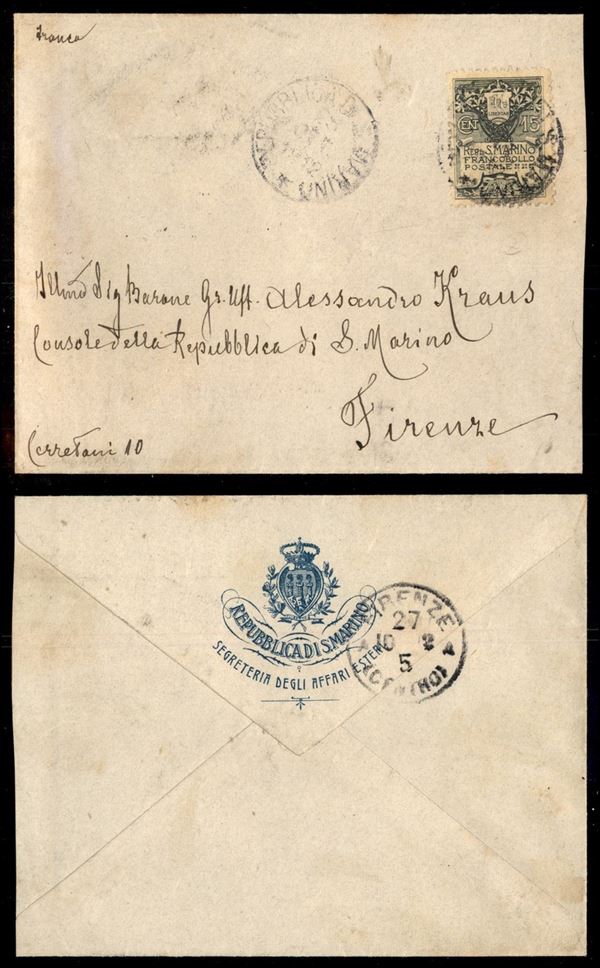 Franca
REPUBBLICA DI
S. MARINO
CENT 15
LIBERTAS
REP. DI S. MARINO
FRANCOBOLLO
POSTALE
Illmo Sig Barone Gr. Uff. Alessandro Kraus
Console della Repubblica di S. Marino
Firenze
Cerretani 10
REPUBBLICA DI S. MARINO
SEGRETERIA DEGLI AFFARI ESTERI
FIRENZE
27
10 2
5
(CENTRO)